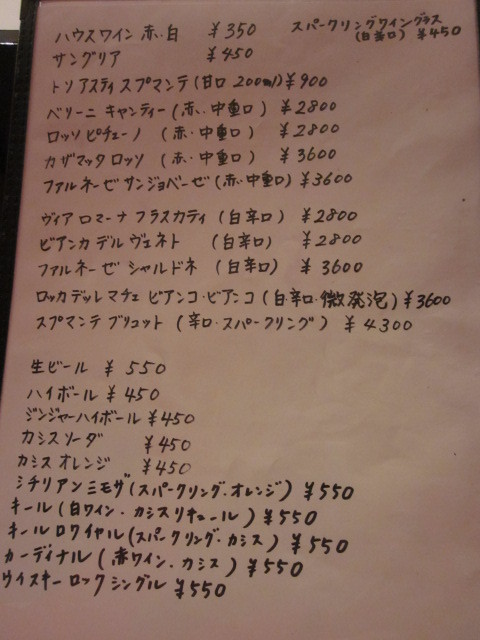 ハウスワイン 赤.白 ¥350
スパークリングワイン グラス (白辛口) ¥450
サングリア ¥450
トソ アスティ スプマンテ (甘口 200ml) ¥900
ベリーニ キャンティー (赤.中重口) ¥2800
ロッソ ピチェーノ (赤.中重口) ¥2800
カザマッタ ロッソ (赤.中重口) ¥3600
ファルネーゼ サンジョベーゼ (赤.中重口) ¥3600
ヴィア ロマーナ フラスカティ (白辛口) ¥2800
ビアンカ デル ヴェネト (白辛口) ¥2800
ファルネーゼ シャルドネ (白辛口) ¥3600
ロッカ デッレ マチェ ビアンコ・ビアンコ (白.辛口.微発泡) ¥3600
スプマンテ ブリュット (辛口.スパークリング) ¥4300
生ビール ¥550
ハイボール ¥450
ジンジャーハイボール ¥450
カシスソーダ ¥450
カシスオレンジ ¥450
シチリアン ミモザ (スパークリング.オレンジ) ¥550
キール (白ワイン.カシスリキュール) ¥550
キールロワイヤル (スパークリング.カシス) ¥550
カーディナル (赤ワイン.カシス) ¥550
ウイスキー ロック シングル ¥550